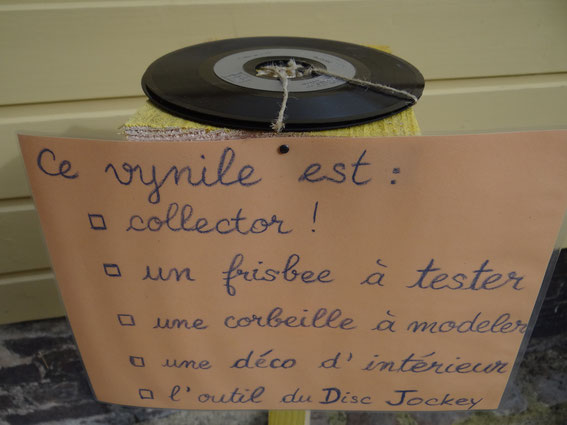 Ce vynile est :
□ collector !
□ un frisbee à tester
□ une corbeille à modeler
□ une déco d'intérieur
□ l'outil du Disc Jockey